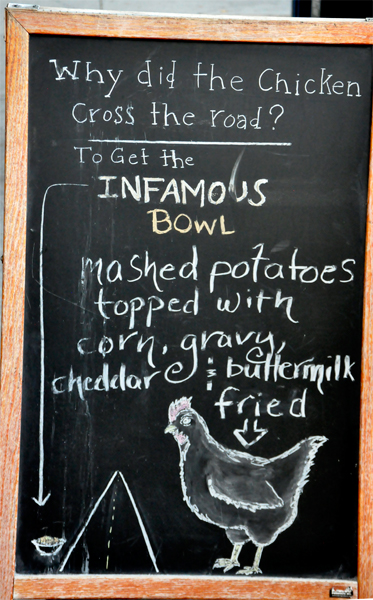 Why did the Chicken
Cross the road?
To Get the
INFAMOUS
BOWL
mashed potatoes
topped with
corn, gravy,
cheddar & buttermilk
fried